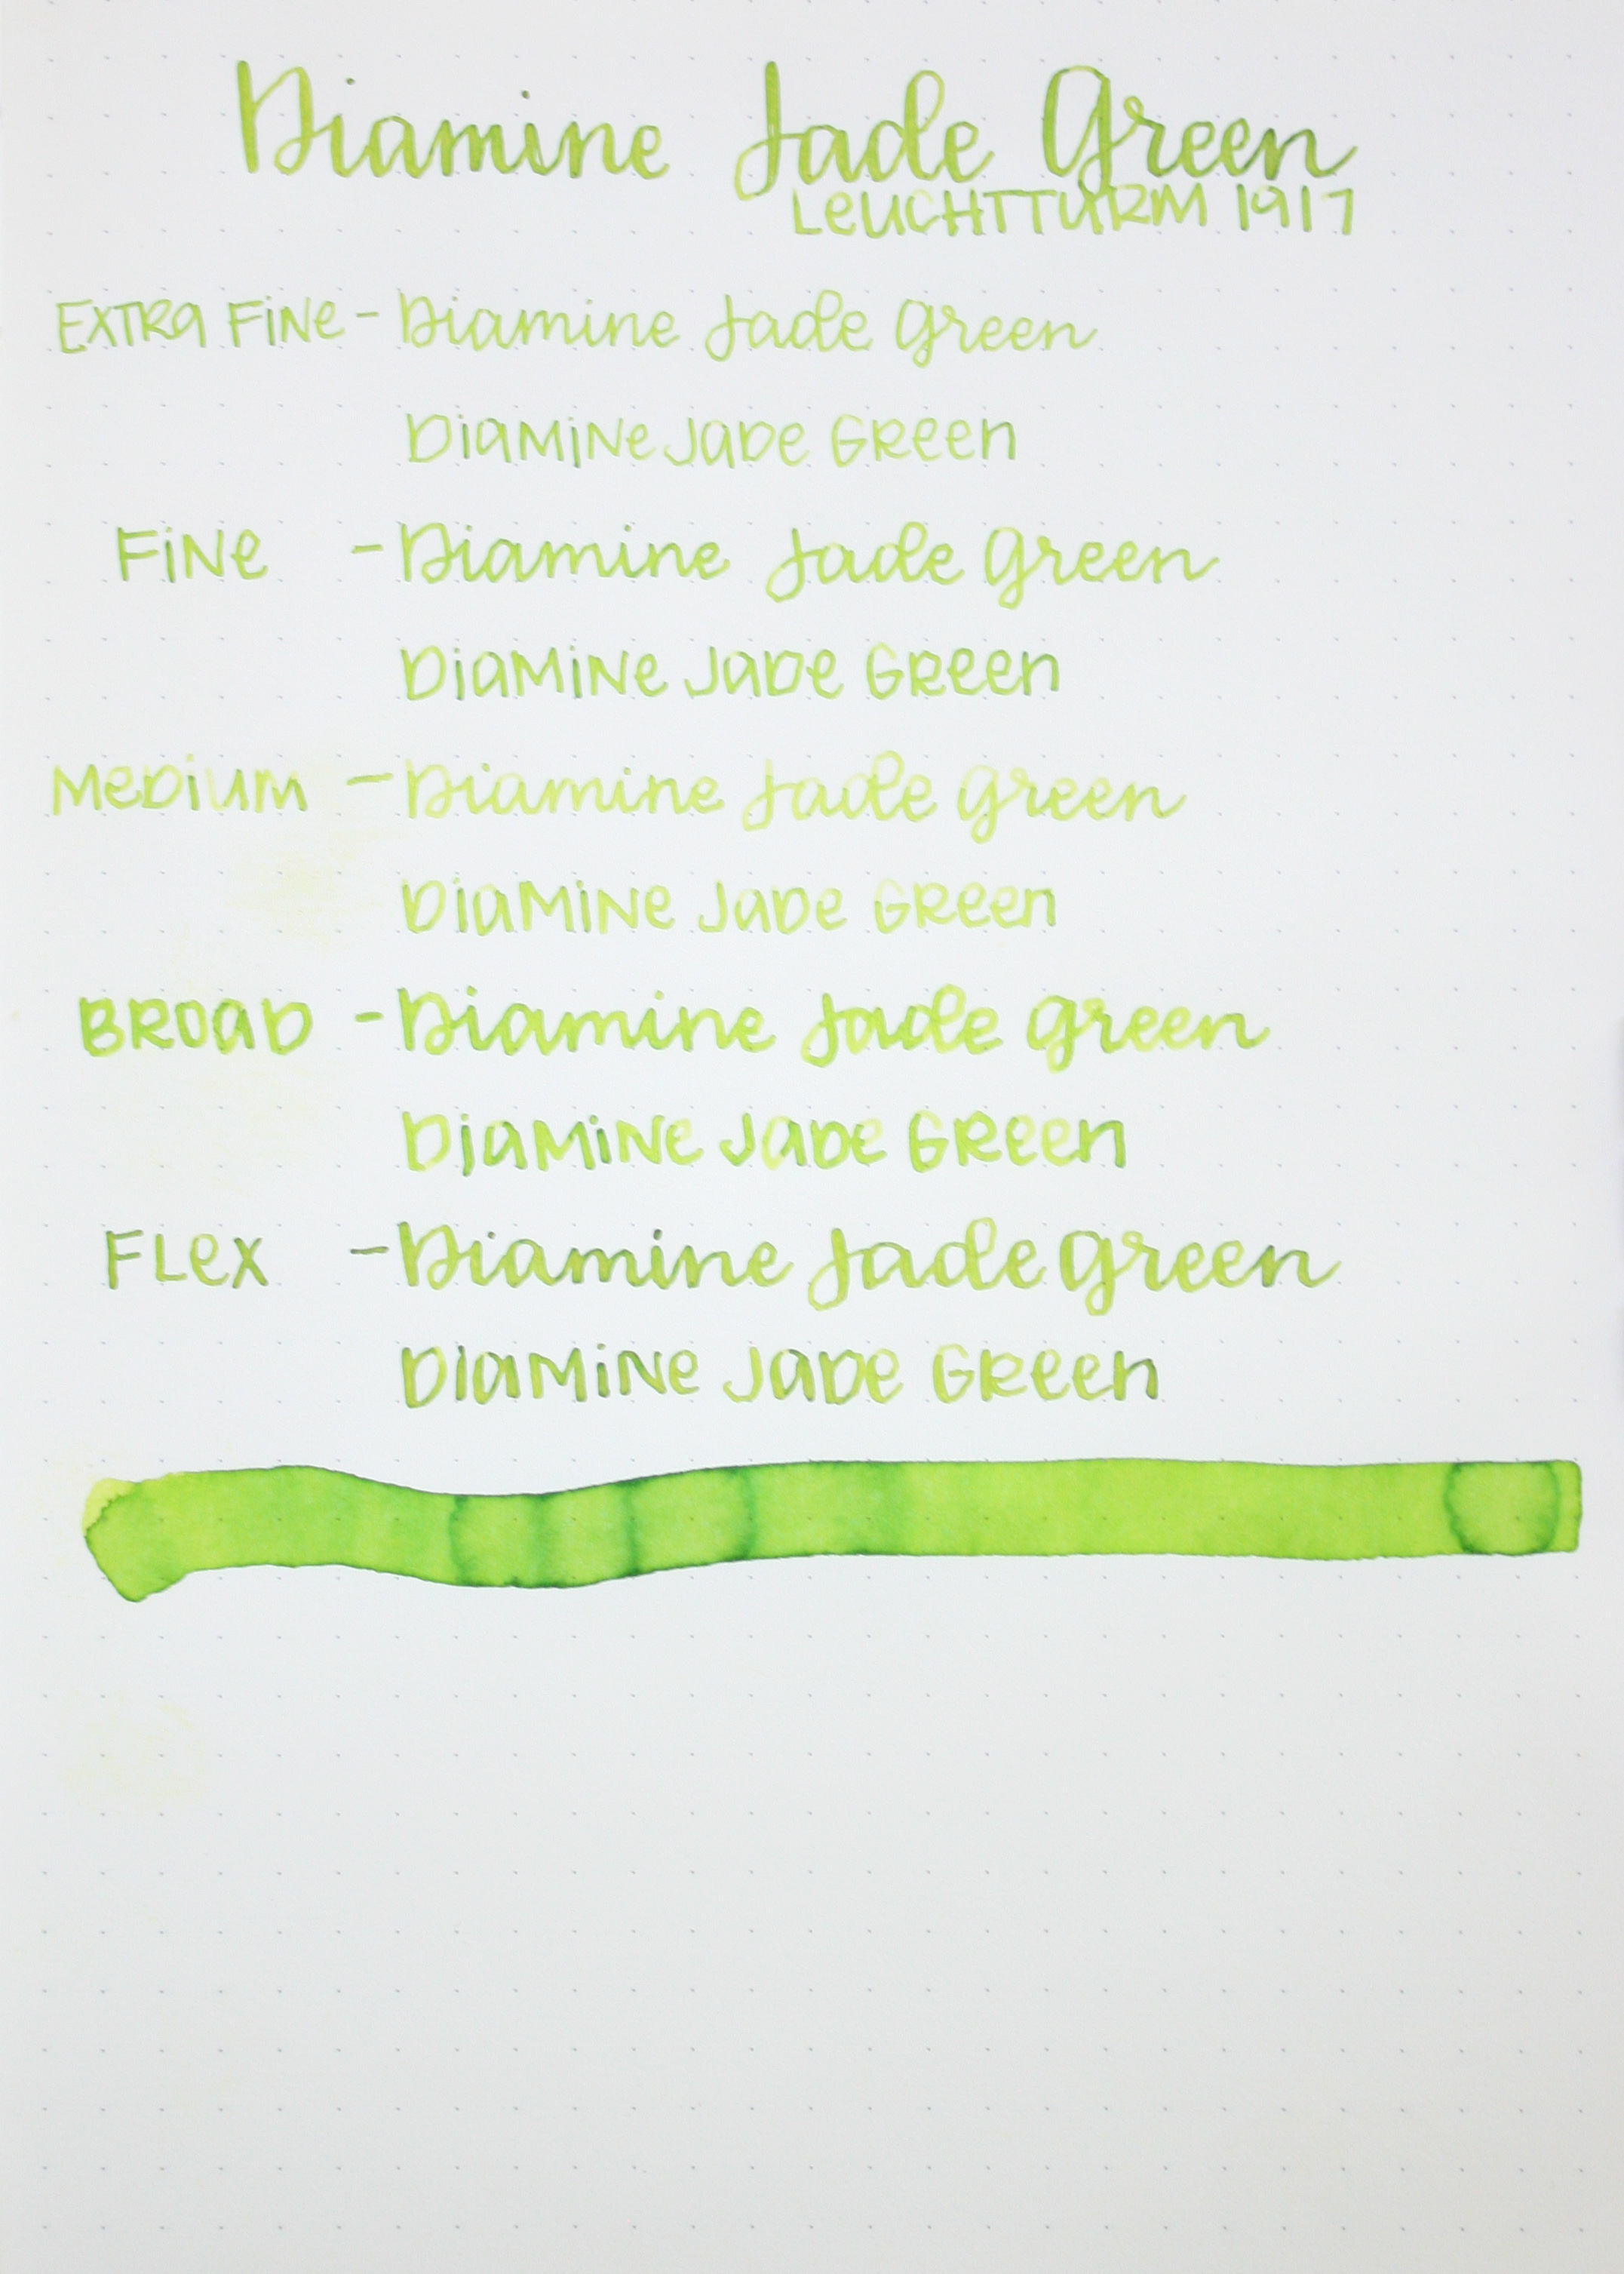 Diamine Jade Green
LEUCHTTURM 1917
EXTRA FINE - Diamine Jade Green
DIAMINE JADE GREEN
FINE - Diamine Jade Green
DIAMINE JADE GREEN
MEDIUM - Diamine Jade Green
DIAMINE JADE GREEN
BROAD - Diamine Jade Green
DIAMINE JADE GREEN
FLEX - Diamine Jade Green
DIAMINE JADE GREEN